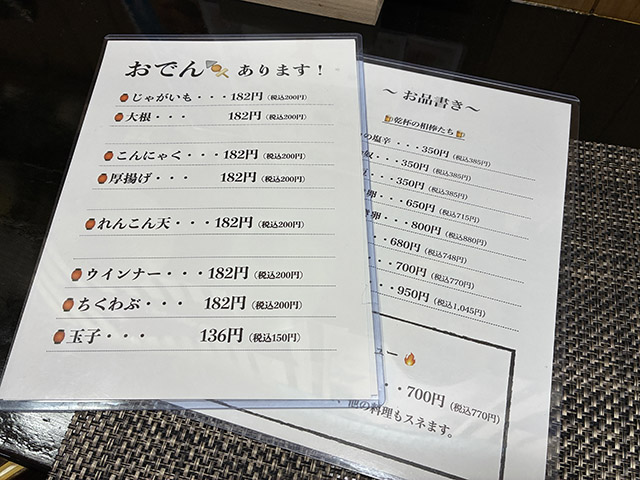 おでん🍢あります！
じゃがいも・・・182円（税込200円）
大根・・・ 182円（税込200円）
こんにゃく・・・182円（税込200円）
厚揚げ・・・ 182円（税込200円）
れんこん天・・・182円（税込200円）
ウインナー・・・182円（税込200円）
ちくわぶ・・・ 182円（税込200円）
玉子・・・ 136円（税込150円）
～ お品書き～
🍺乾杯の相棒たち🍺
の塩辛・・・350円（税込385円）
・・・350円（税込385円）
・・・350円（税込385円）
卵・・・650円（税込715円）
卵・・・800円（税込880円）
・・・680円（税込748円）
・・・700円（税込770円）
・・・950円（税込1,045円）
ュー🔥
・・・700円（税込770円）
他の料理もスネます。